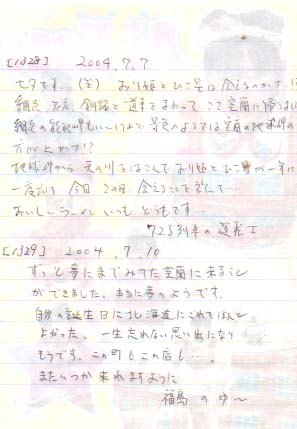 [1328] 2004.7.7
七夕です…(笑) おり姫とひこ星は会えるのかナ…!?
網走、知床、釧路と道東をまわって ここ室蘭に帰り
網走の能取岬もいいけど 景色によっては室蘭の地球岬の
方がよかナ!?
地球岬から 天の川をはさんで おり姫とひこ星が一年に
一度だけ 今日 この日 会えることを
おいしいラーメン いつも どうもです…
723列車の運転士
[1329] 2004.7.10
ずっと夢にまでみてた室蘭に来ること
ができました。本当に夢のようです。
自分の誕生日に北海道にこれてほんと
よかった。一生忘れない思い出になり
そうです。この町もこの店も…。
またいつか来れますように
福島 のゆ〜